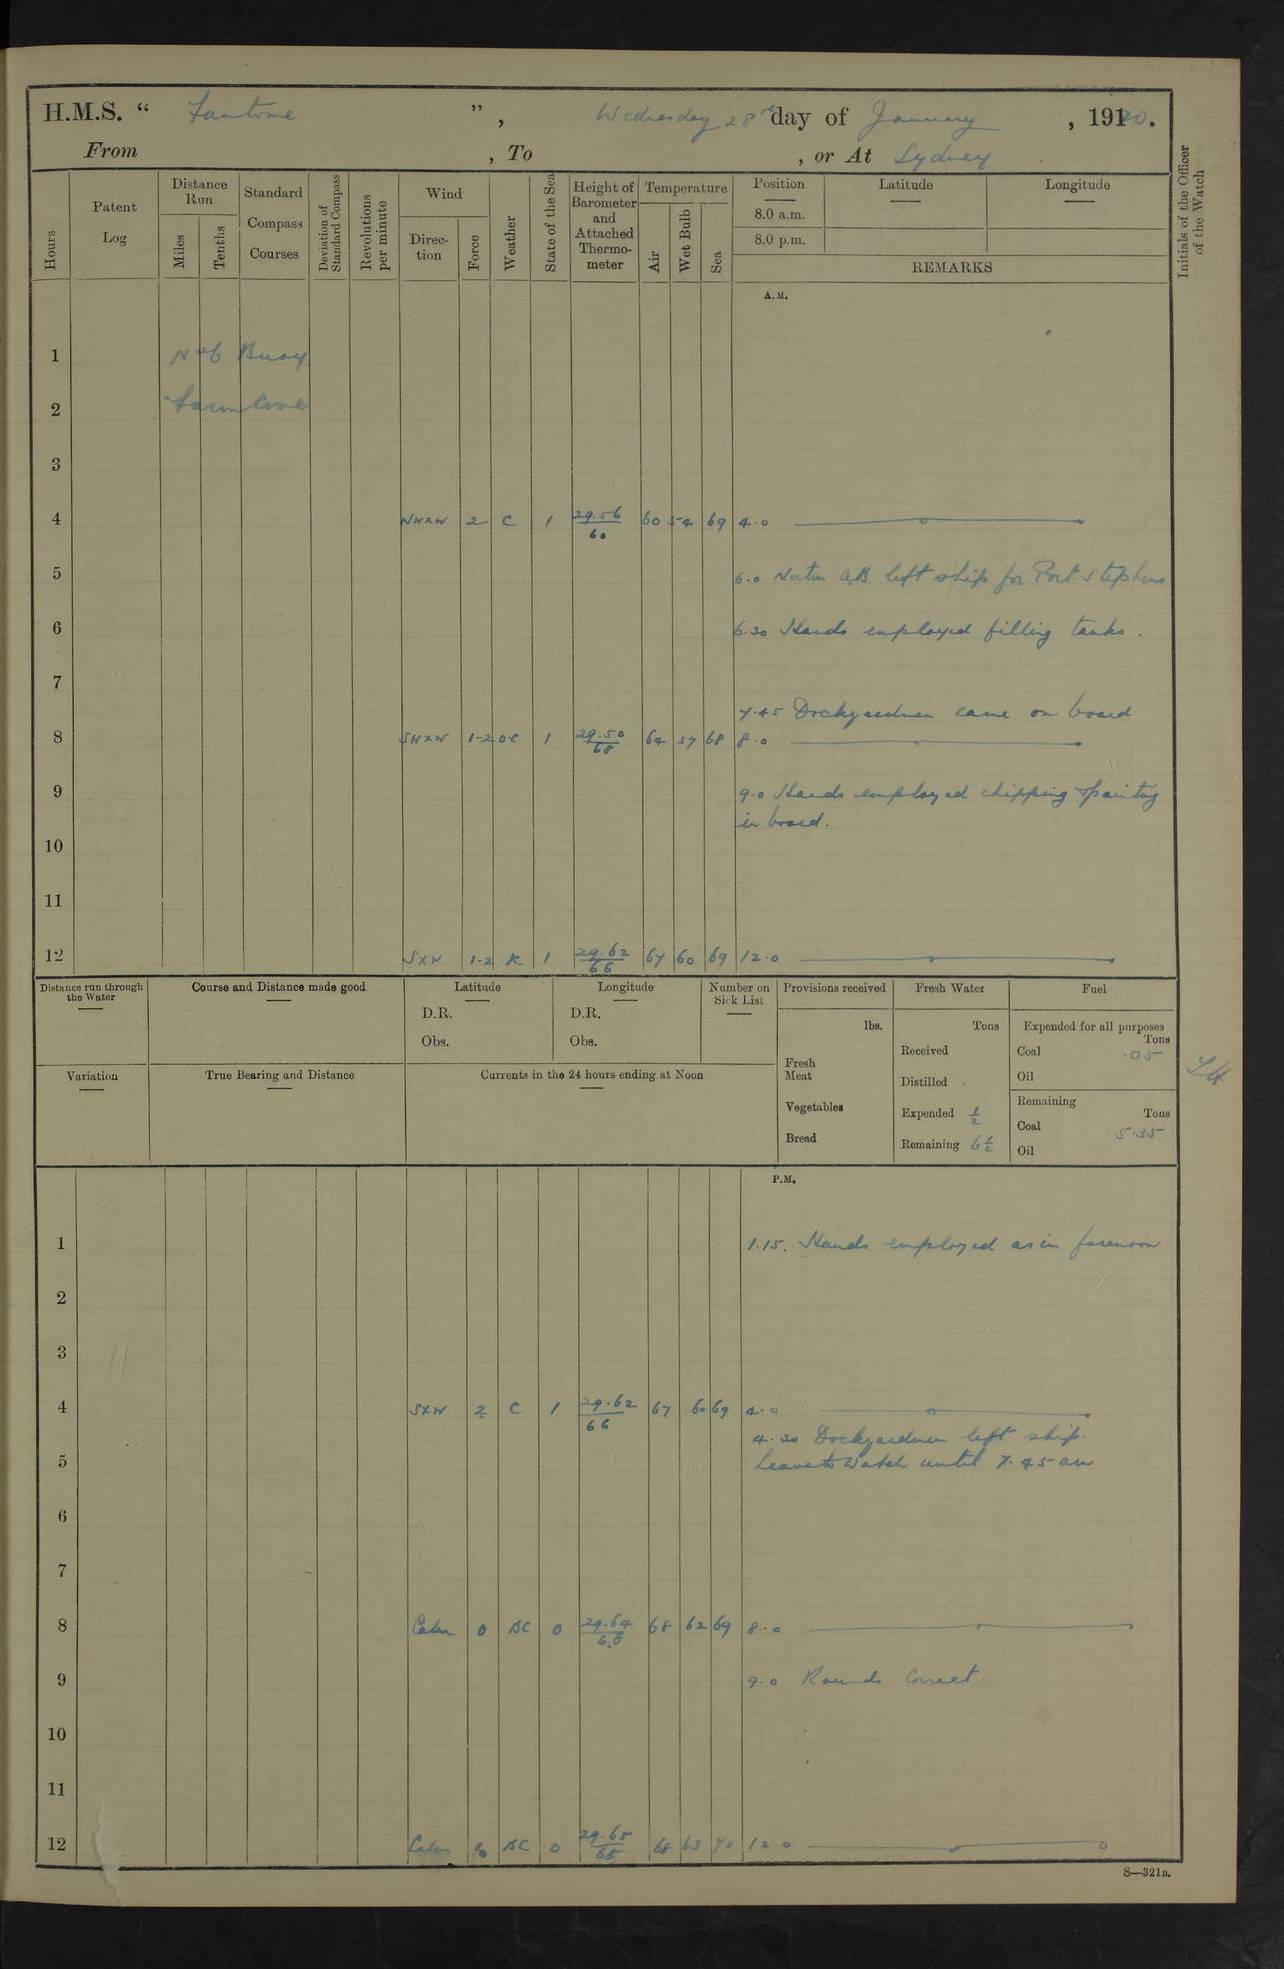 H.M.S. “ Fantome ”, Wednesday 28th day of January, 1920.
From , To , or At Sydney
Hours
Patent Log
Distance Run
Miles
Tenths
Standard Compass Courses
Deviation of Standard Compass
Revolutions per minute
Wind
Direction
Force
Weather
State of the Sea
Height of Barometer and Attached Thermometer
Temperature
Air
Wet Bulb
Sea
Position
8.0 a.m.
8.0 p.m.
Latitude
Longitude
REMARKS
Initials of the Officer of the Watch
A.M.
1 No 6 Buoy
2 Farm Cove
3
4 2 C 1 29.56/60 60 54 69 4.0
5 6.0 Norton A.B. left ship for Port Stephens
6 6.30 Hands employed filling tanks.
7
7.45 Dockyardmen came on board
8 1-2 1 29.50/68 64 57 68 8.0
9 9.0 Hands employed chipping & painting
in board.
10
11
12 1-2 1 29.62/66 67 60 69 12.0
Distance run through the Water
Course and Distance made good
Latitude
D.R.
Obs.
Longitude
D.R.
Obs.
Number on Sick List
Provisions received
lbs.
Fresh Meat
Vegetables
Bread
Fresh Water
Tons
Received
Distilled
Expended 1/2
Remaining 6 1/2
Fuel
Expended for all purposes
Tons
Coal .05
Oil
Remaining
Tons
Coal 5.35
Oil
Variation
True Bearing and Distance
Currents in the 24 hours ending at Noon
P.M.
1 1.15. Hands employed as in forenoon
2
3
4 SXW 2 C 1 29.62/66 67 60 69 4.0
4.30 Dockyardmen left ship.
5 Leave to Watch until 7.45 am
6
7
8 Calm 0 BC 0 29.64/68 68 62 69 8.0
9 9.0 Rounds Correct.
10
11
12 Calm 0 BC 0 29.65/68 68 63 70 12.0
S—321B.